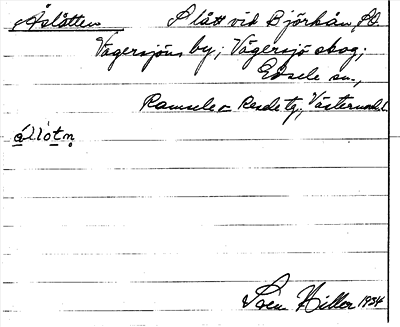 Åslåtten Slått vid Björkån, SO
Vägersjöns by; Vägersjö skog;
Edsele sn.,
Ramsele o Resele tg., Västernorrl.
ål·lò·tṇ
Sven Hiller 1934